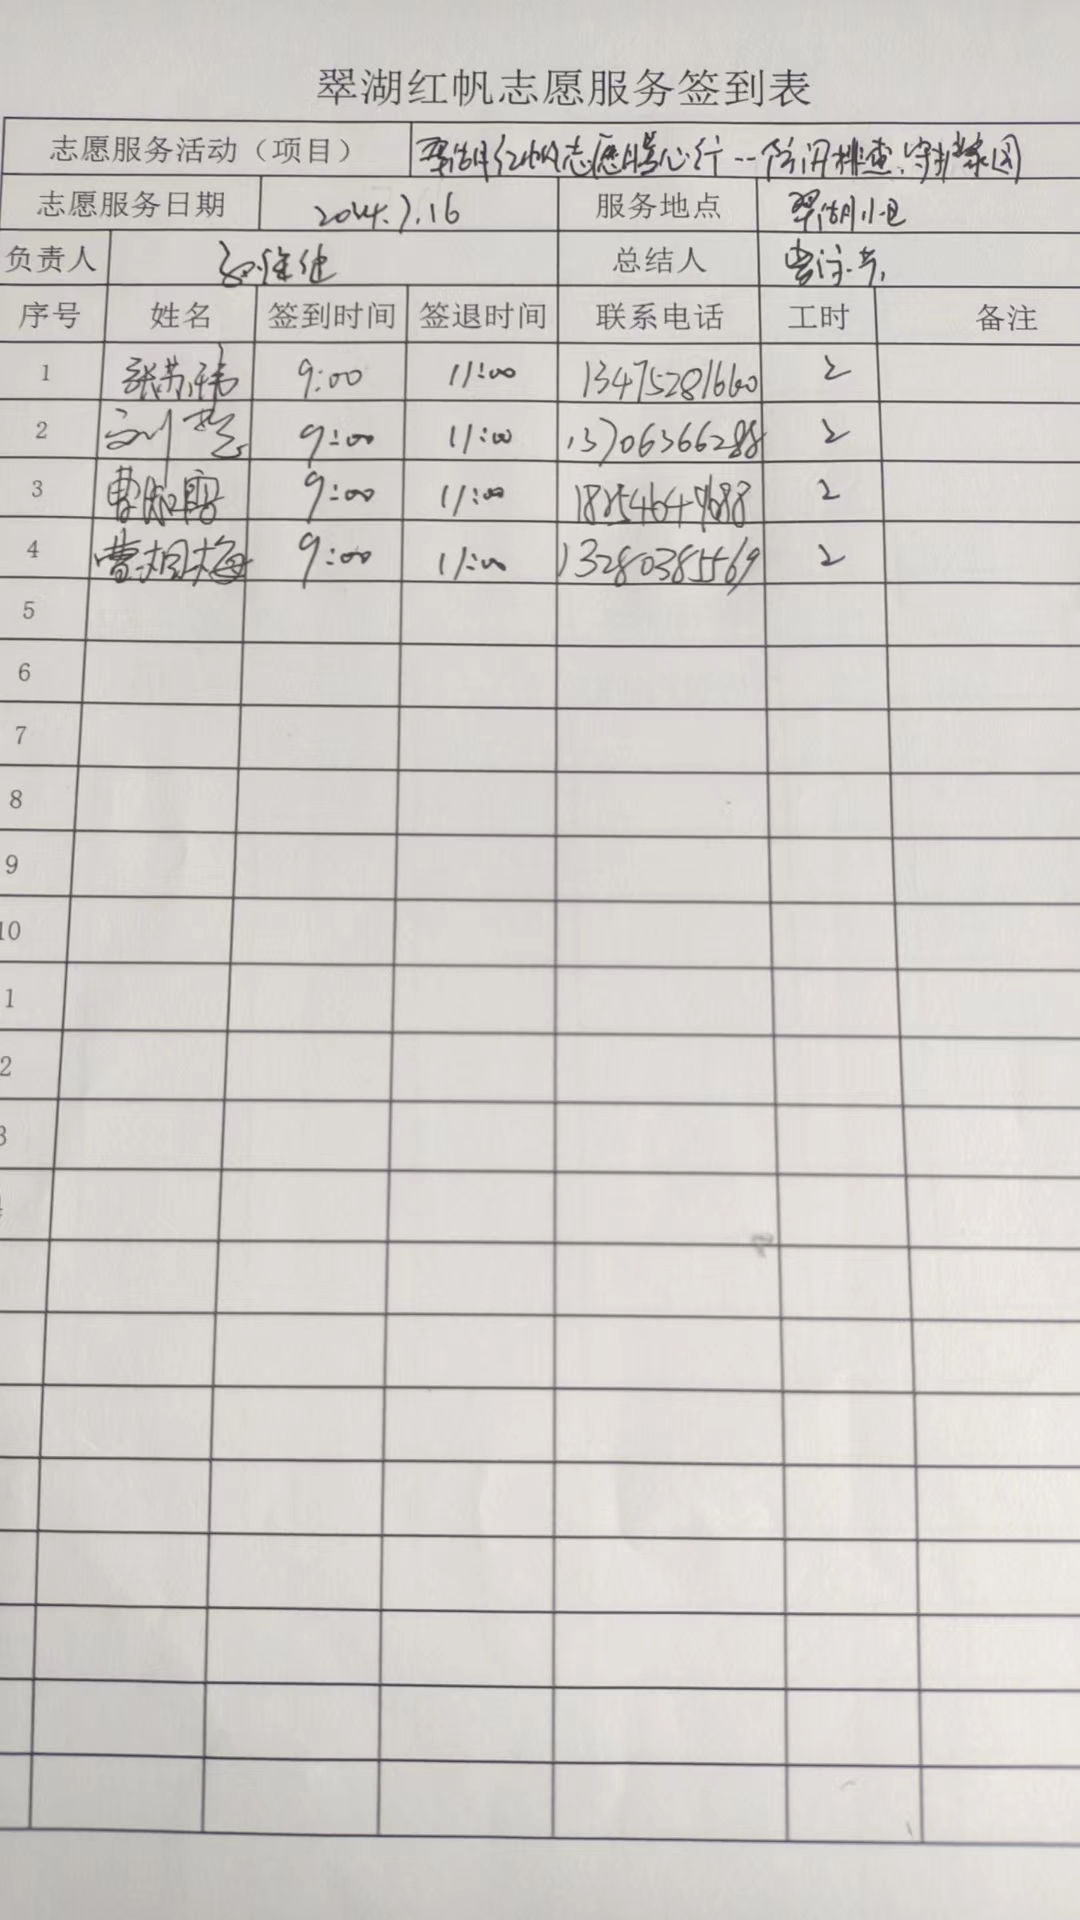 翠湖红帆志愿服务签到表
志愿服务活动（项目） 翠湖红帆志愿暖心行--防汛排查,守护家园
志愿服务日期 2024.7.16 服务地点 翠湖小区
负责人 总结人 曹
序号 姓名 签到时间 签退时间 联系电话 工时 备注
1 张苏伟 9:00 11:00 13475281660 2
2 刘 9:00 11:00 13706366288 2
3 曹 9:00 11:00 2
4 曹相梅 9:00 11:00 13280385569 2
5
6
7
8
9
10
1
2
3